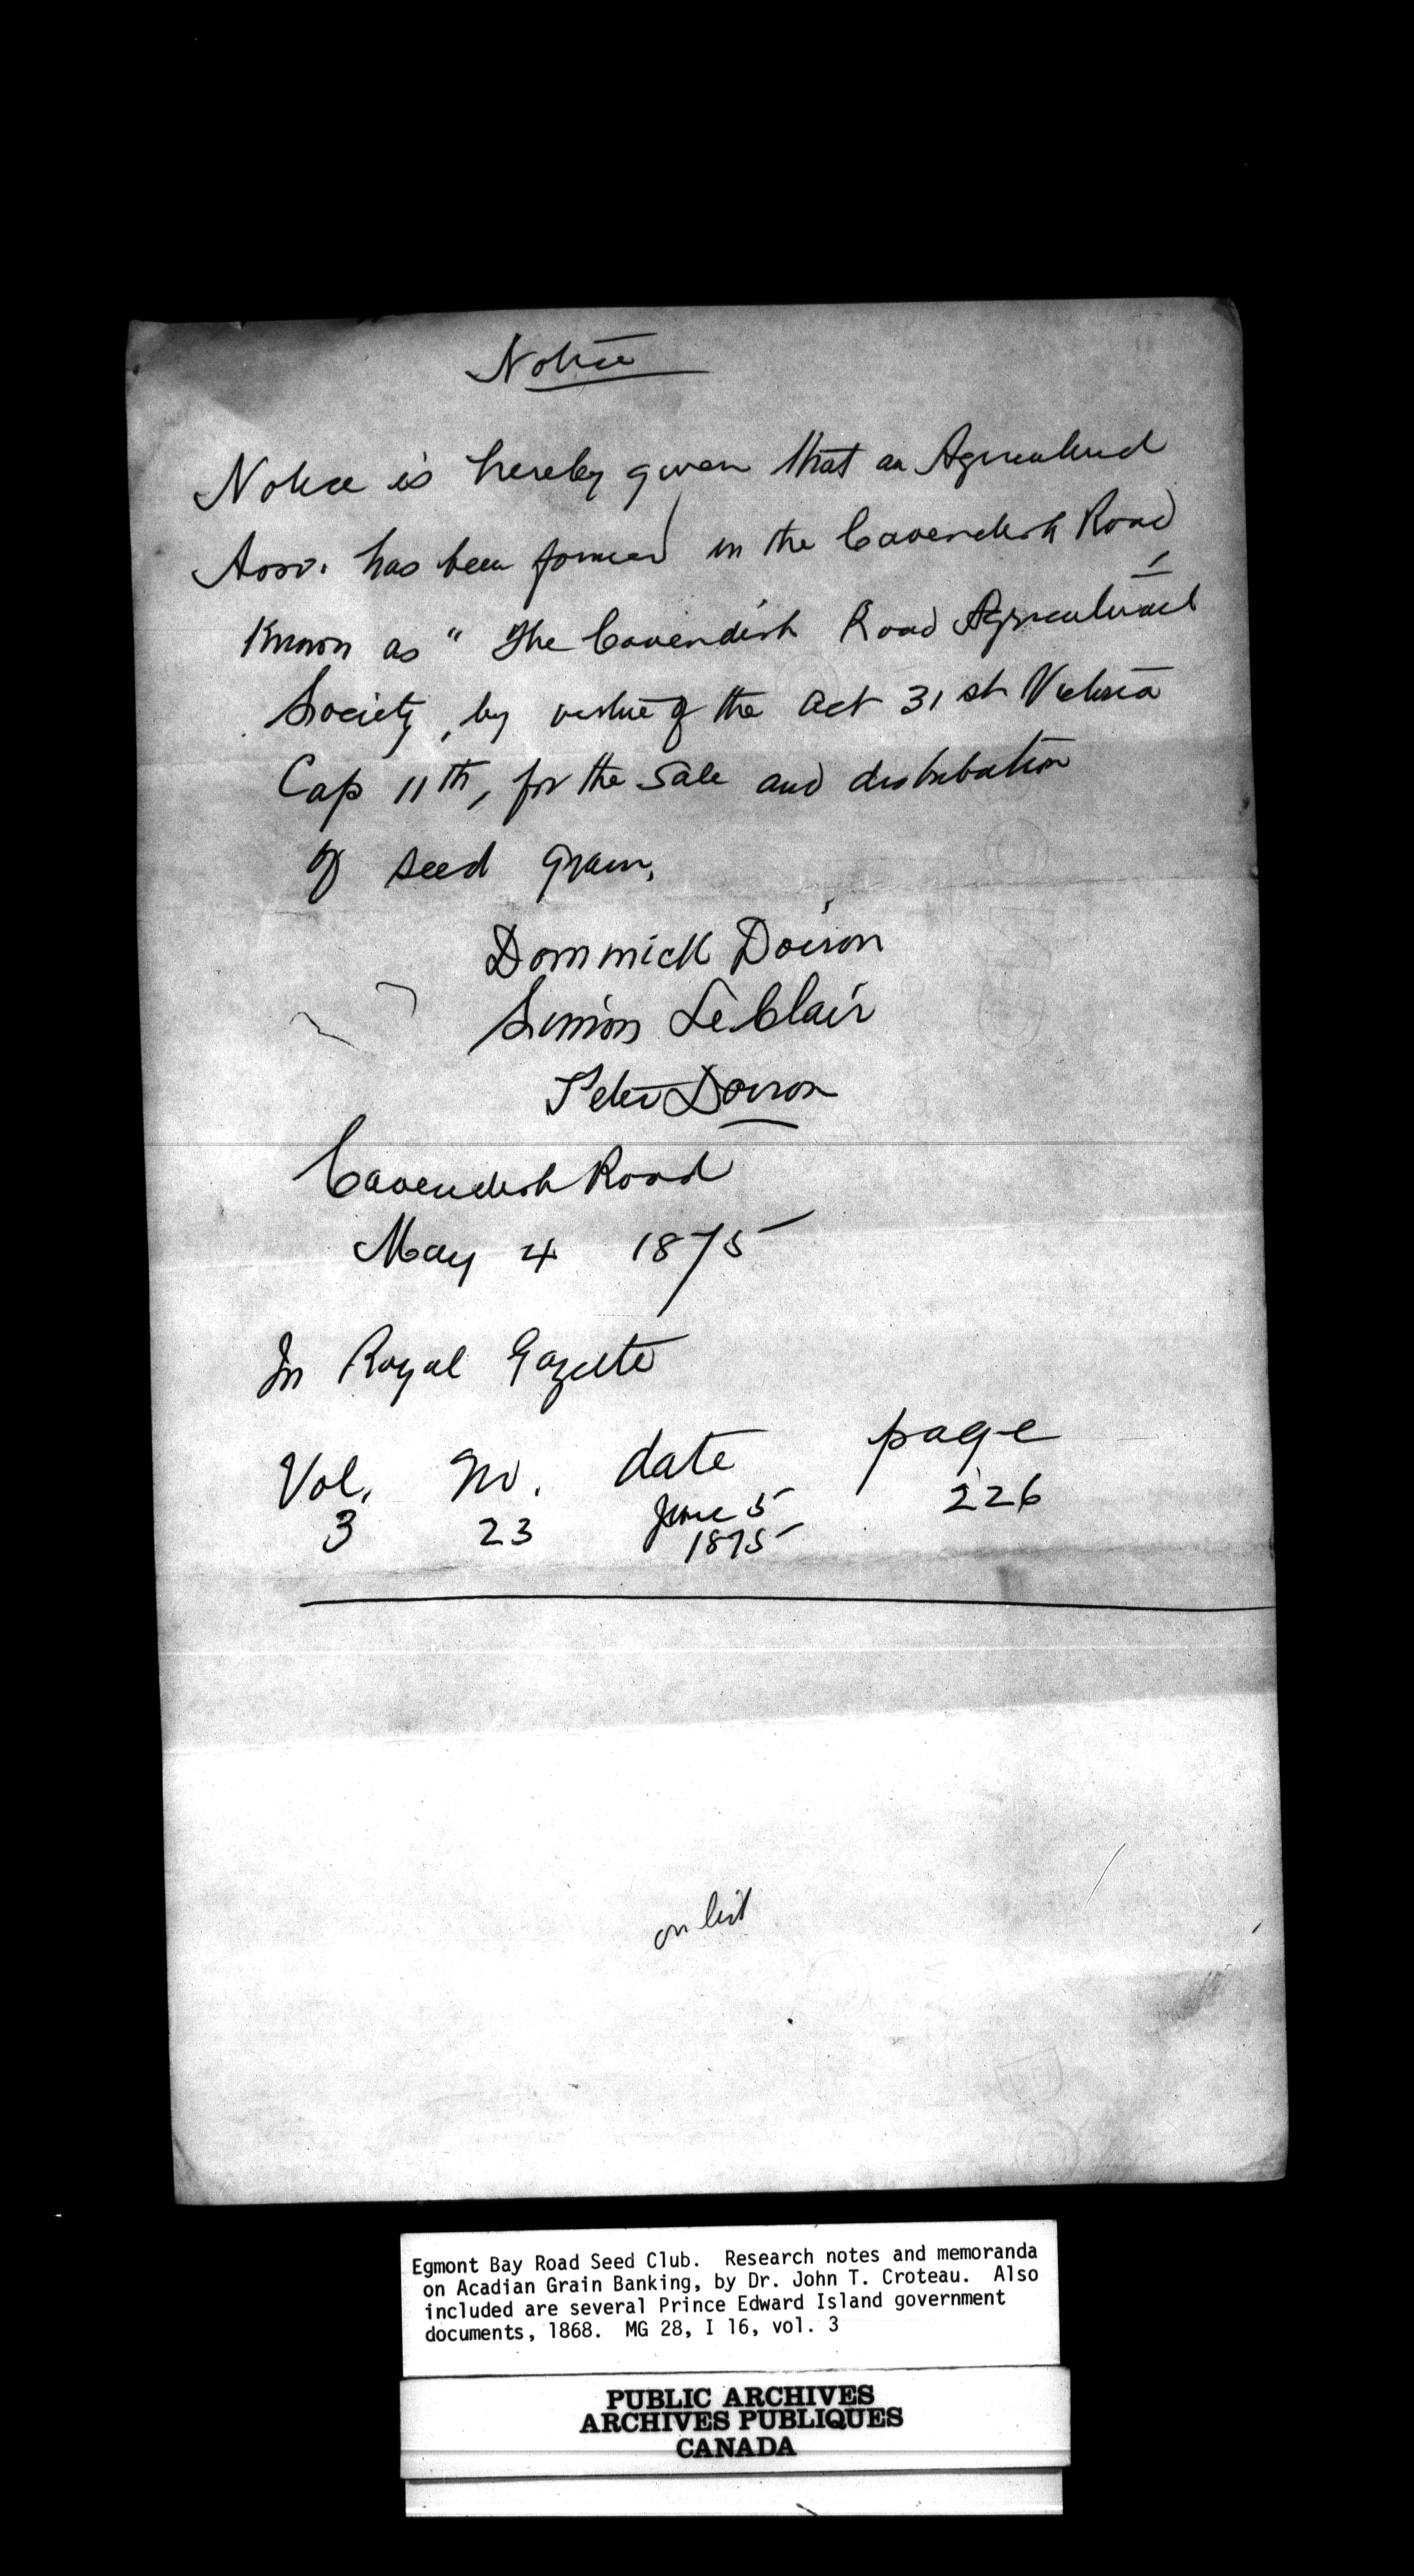 Notice
Notice is hereby given that an Agricultural
Assn. has been formed in the Cavendish Road
Known as " The Cavendish Road Agricultural
Society, by virtue of the act 31 st Victoria
Cap 11th, for the sale and distribution
of seed grain.
Dommick Doiron
Simon LeClair
Peter Doiron
Cavendish Road
May 4 1875
In Royal Gazette
Vol. No. date page
3 23 June 5 226
1875
on list
Egmont Bay Road Seed Club. Research notes and memoranda
on Acadian Grain Banking, by Dr. John T. Croteau. Also
included are several Prince Edward Island government
documents, 1868. MG 28, I 16, vol. 3
PUBLIC ARCHIVES
ARCHIVES PUBLIQUES
CANADA